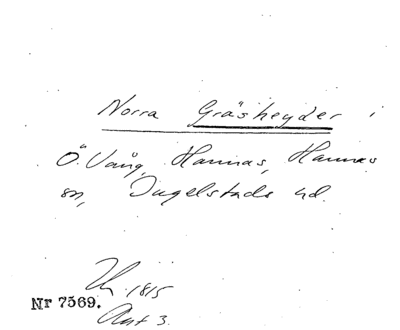 Norra Gräsheyder i
Ö. Vång, Hannas, Hannas
sn, Ingelstads hd.
1815
Nr 7569.
Akt 3.